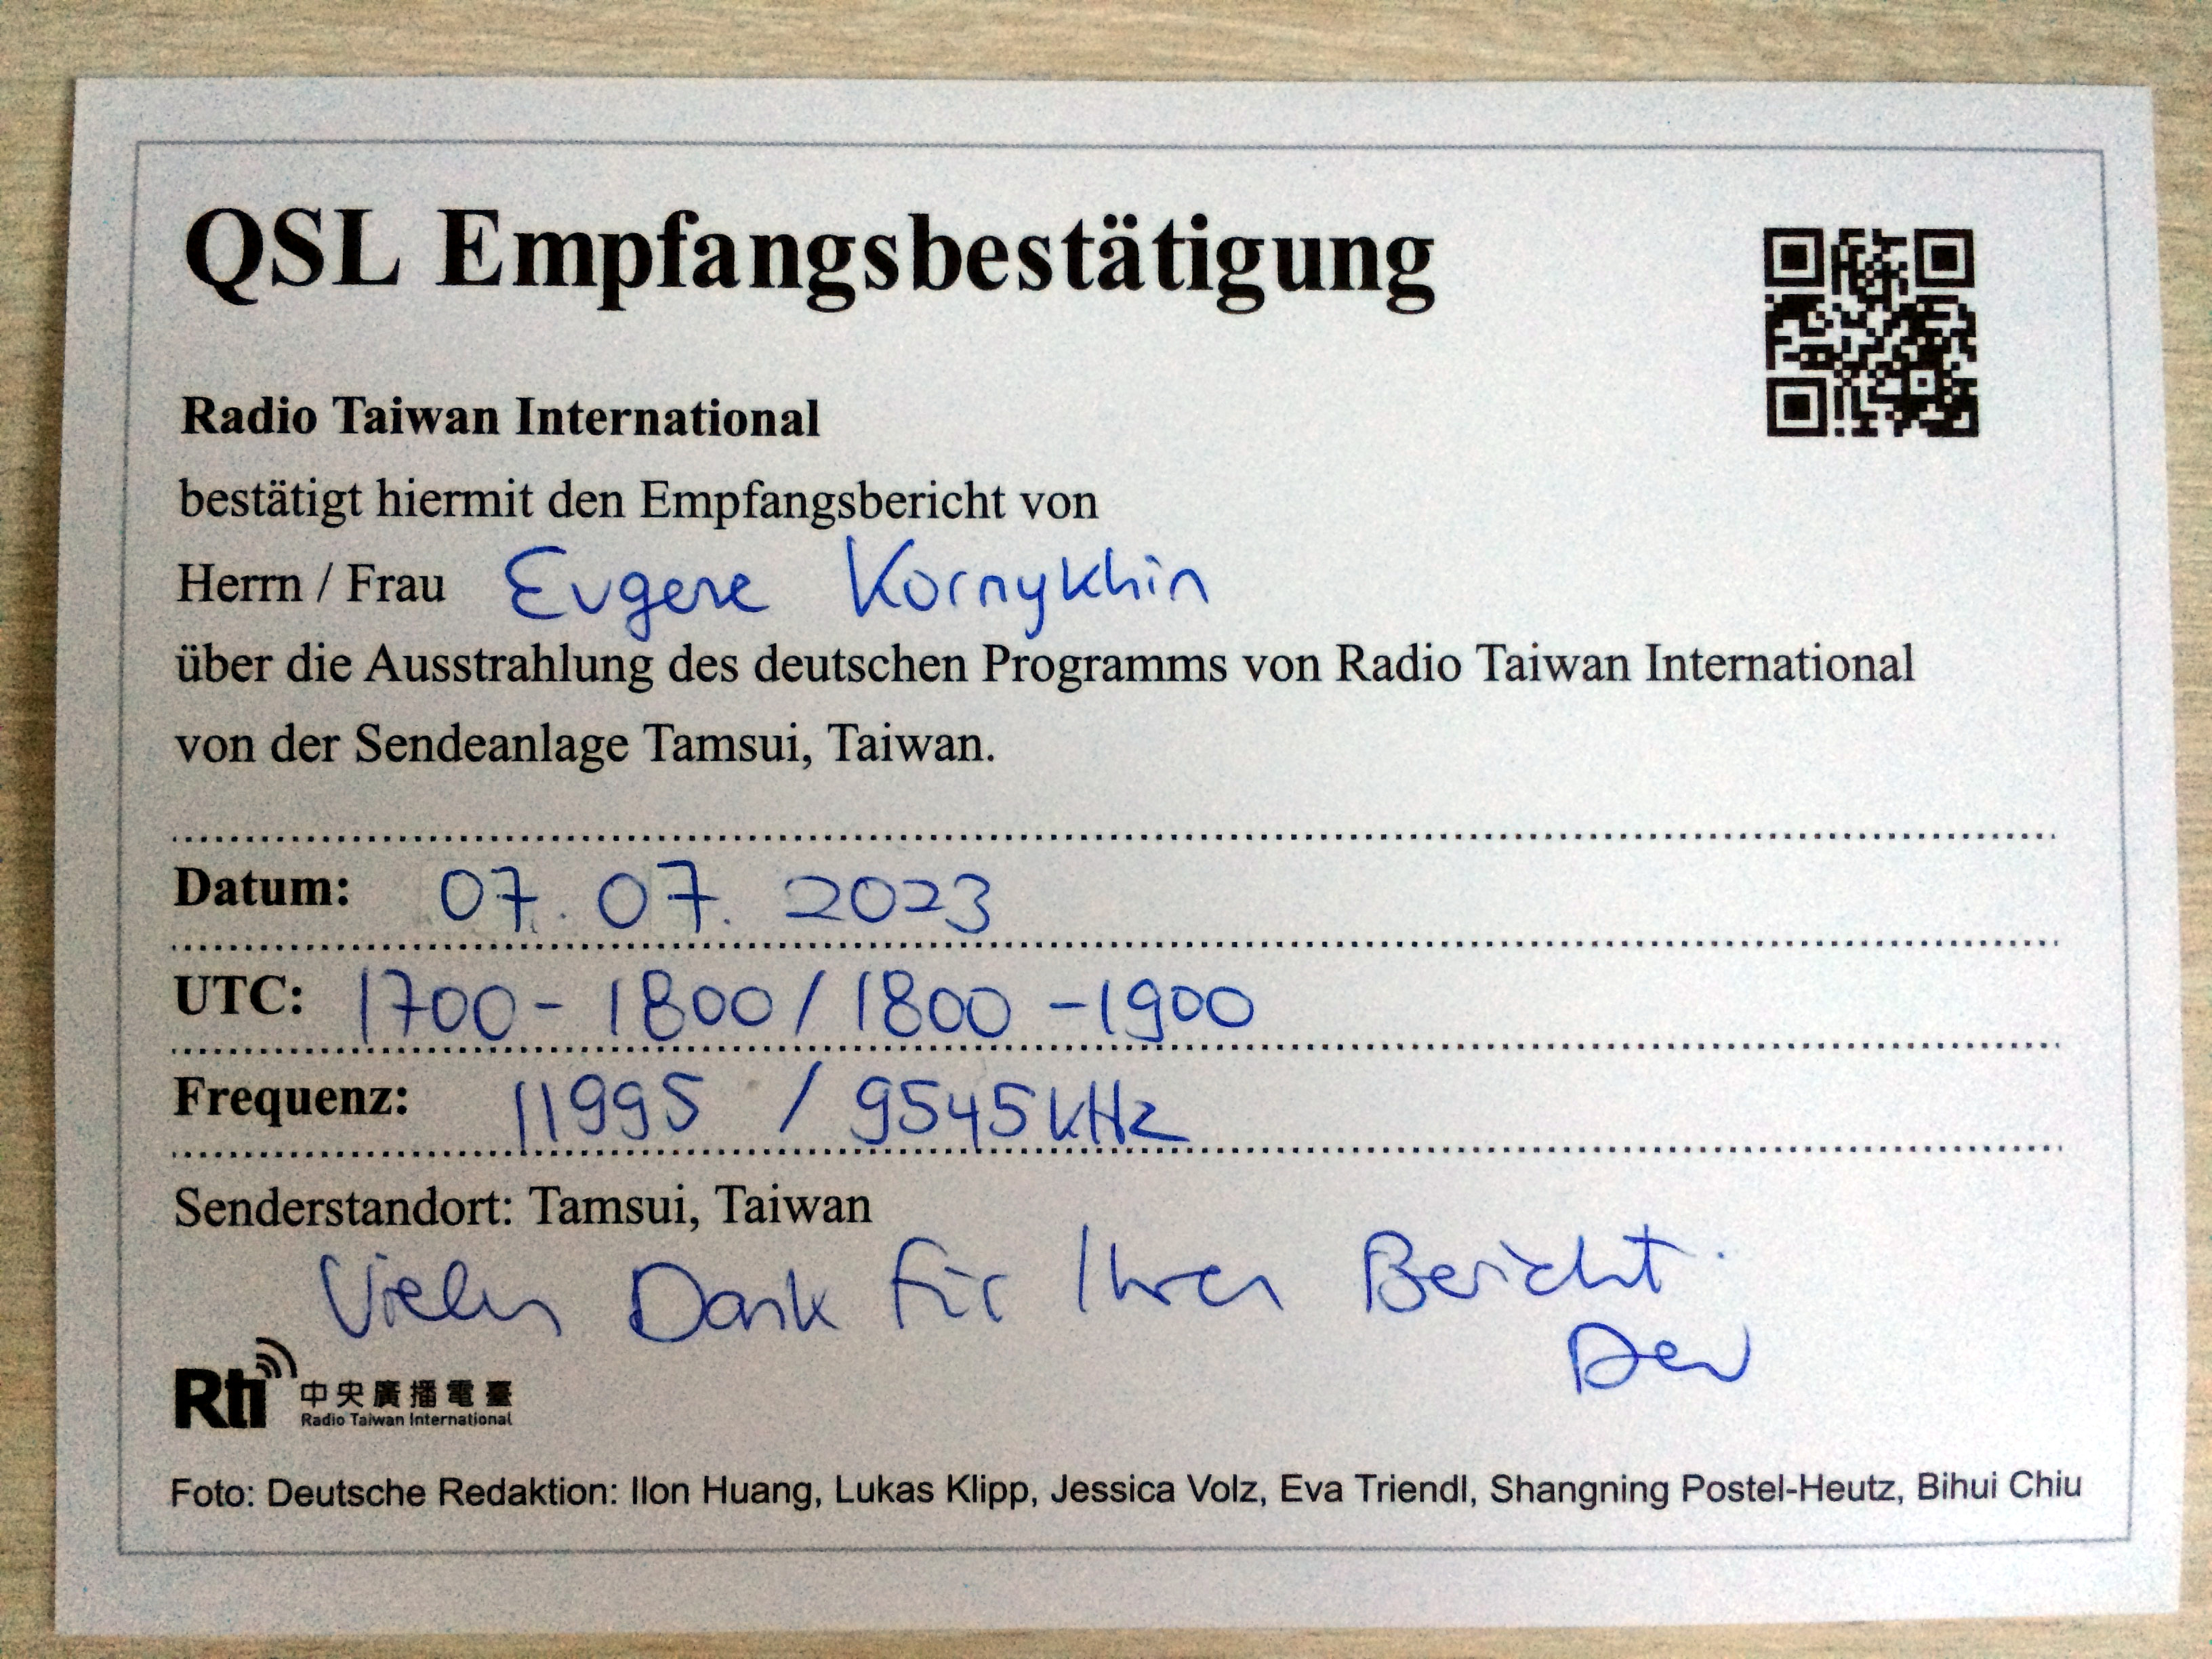 QSL Empfangsbestätigung
Radio Taiwan International
bestätigt hiermit den Empfangsbericht von
Herrn / Frau Evgene Kornykhin
über die Ausstrahlung des deutschen Programms von Radio Taiwan International
von der Sendeanlage Tamsui, Taiwan.
Datum: 07.07.2023
UTC: 1700-1800/1800-1900
Frequenz: 11995 / 9545 kHz
Senderstandort: Tamsui, Taiwan
Vielen Dank für Ihren Bericht.
Rti 中央廣播電臺
Radio Taiwan International
Foto: Deutsche Redaktion: Ilon Huang, Lukas Klipp, Jessica Volz, Eva Triendl, Shangning Postel-Heutz, Bihui Chiu